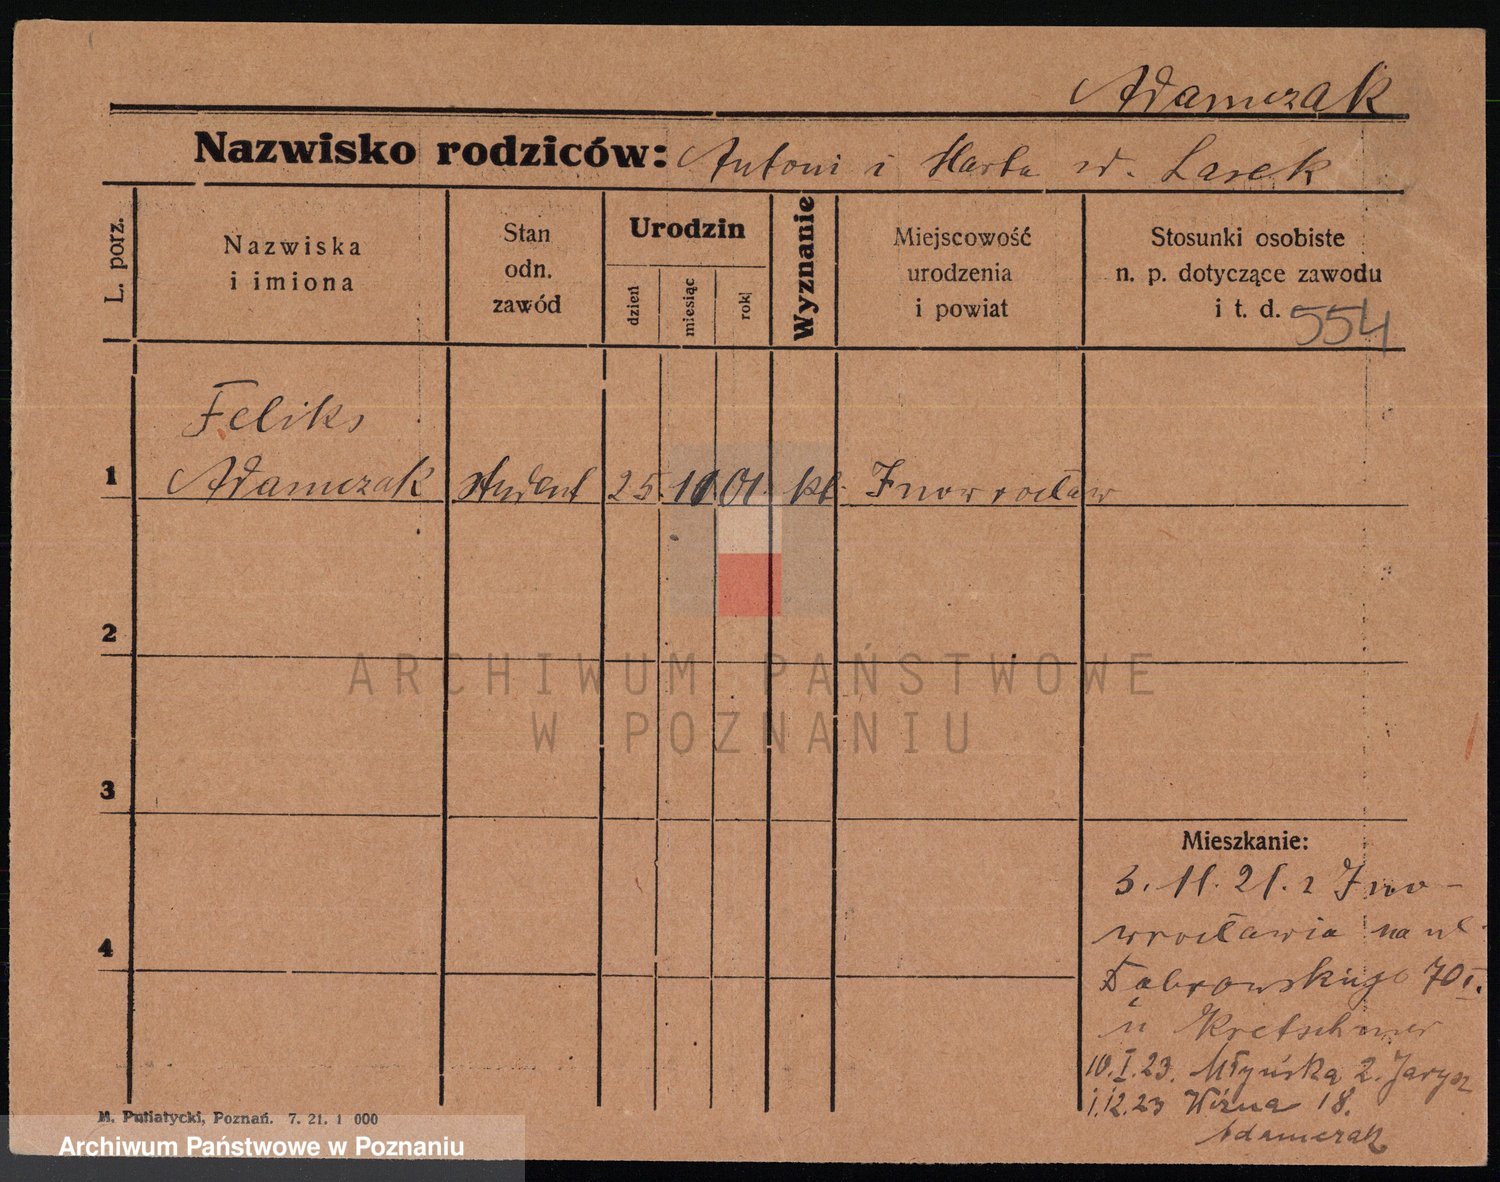 Adamczak
Nazwisko rodziców: Antoni i Marta w. Lasek
L. porz.
Nazwiska
i imiona
Stan
odn.
zawód
Urodzin
dzień
miesiąc
rok
Wyznanie
Miejscowość
urodzenia
i powiat
Stosunki osobiste
n. p. dotyczące zawodu
i t. d. 554
Feliks
1 Adamczak student 25. 10 01. kt. Inowrocław
2
3
4
Mieszkanie:
3. 11. 21. z Ino-
wrocławia na ul.
Dąbrowskiego 70 I.
u Kretschmer
10. I. 23. Młyńska 2. Jarysz
1.12.23 18.
Adamczak
M. Putiatycki, Poznań. 7. 21. 1 000
ARCHIWUM PAŃSTWOWE
W POZNANIU
Archiwum Państwowe w Poznaniu